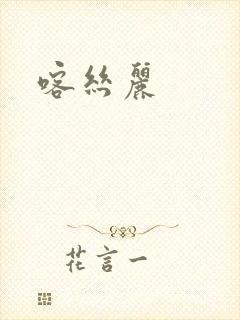 喀絲麗
花言一